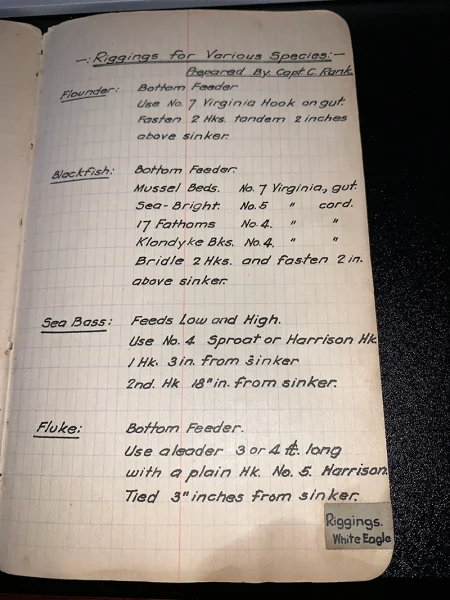 -: Riggings for Various Species:-
Prepared By Capt C. Rank.
Flounder: Bottom Feeder
Use No. 7 Virginia Hook on gut.
Fasten 2 Hks. tandem 2 inches
above sinker.
Blackfish: Bottom Feeder.
Mussel Beds. No. 7 Virginia, gut.
Sea-Bright. No. 5 " cord.
17 Fathoms No. 4. " "
Klondyke Bks. No. 4. " "
Bridle 2 Hks. and fasten 2 in.
above sinker.
Sea Bass: Feeds Low and High.
Use No. 4 Sproat or Harrison Hk.
1 Hk. 3 in. from sinker
2nd. Hk 18" in. from sinker.
Fluke: Bottom Feeder.
Use a leader 3 or 4 ft. long
with a plain Hk. No. 5. Harrison.
Tied 3" inches from sinker.
Riggings.
White Eagle